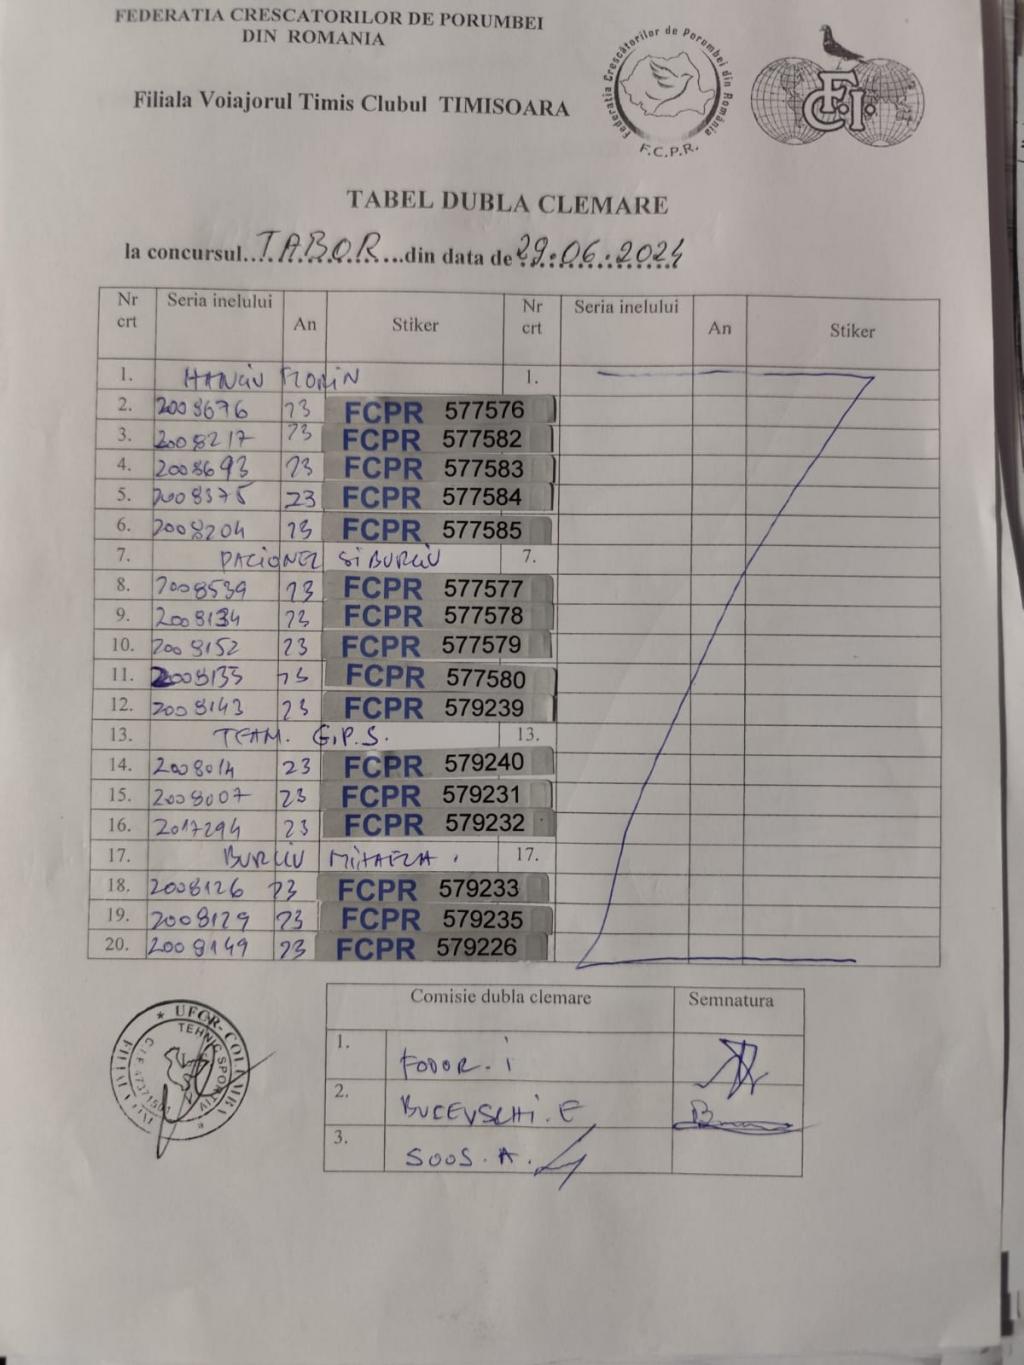 FEDERATIA CRESCATORILOR DE PORUMBEI
DIN ROMANIA
Filiala Voiajorul Timis Clubul TIMISOARA
Federatia Crescătorilor de Porumbei din România
F.C.P.R.
F.C.I.
TABEL DUBLA CLEMARE
la concursul...TABOR...din data de 29.06.2024
Nr crt Seria inelului An Stiker Nr crt Seria inelului An Stiker
1. HANCIU FLORIN 1.
2. 2008676 23 FCPR 577576
3. 2008217 23 FCPR 577582
4. 2008693 23 FCPR 577583
5. 2008375 23 FCPR 577584
6. 2008204 23 FCPR 577585
7. SI BURCIU 7.
8. 2008539 23 FCPR 577577
9. 2008134 23 FCPR 577578
10. 2008152 23 FCPR 577579
11. 2008135 23 FCPR 577580
12. 2008143 23 FCPR 579239
13. TEAM. G.P.S. 13.
14. 2008014 23 FCPR 579240
15. 2008007 23 FCPR 579231
16. 2017294 23 FCPR 579232
17. BURCIU MIHAELA . 17.
18. 2008126 23 FCPR 579233
19. 2008129 23 FCPR 579235
20. 2008149 23 FCPR 579226
Comisie dubla clemare Semnatura
1. FODOR. i
2. BUCEVSCHI. E
3. SOOS. A.
UFCR-COLUMBA
TEHNIC SPORTIV